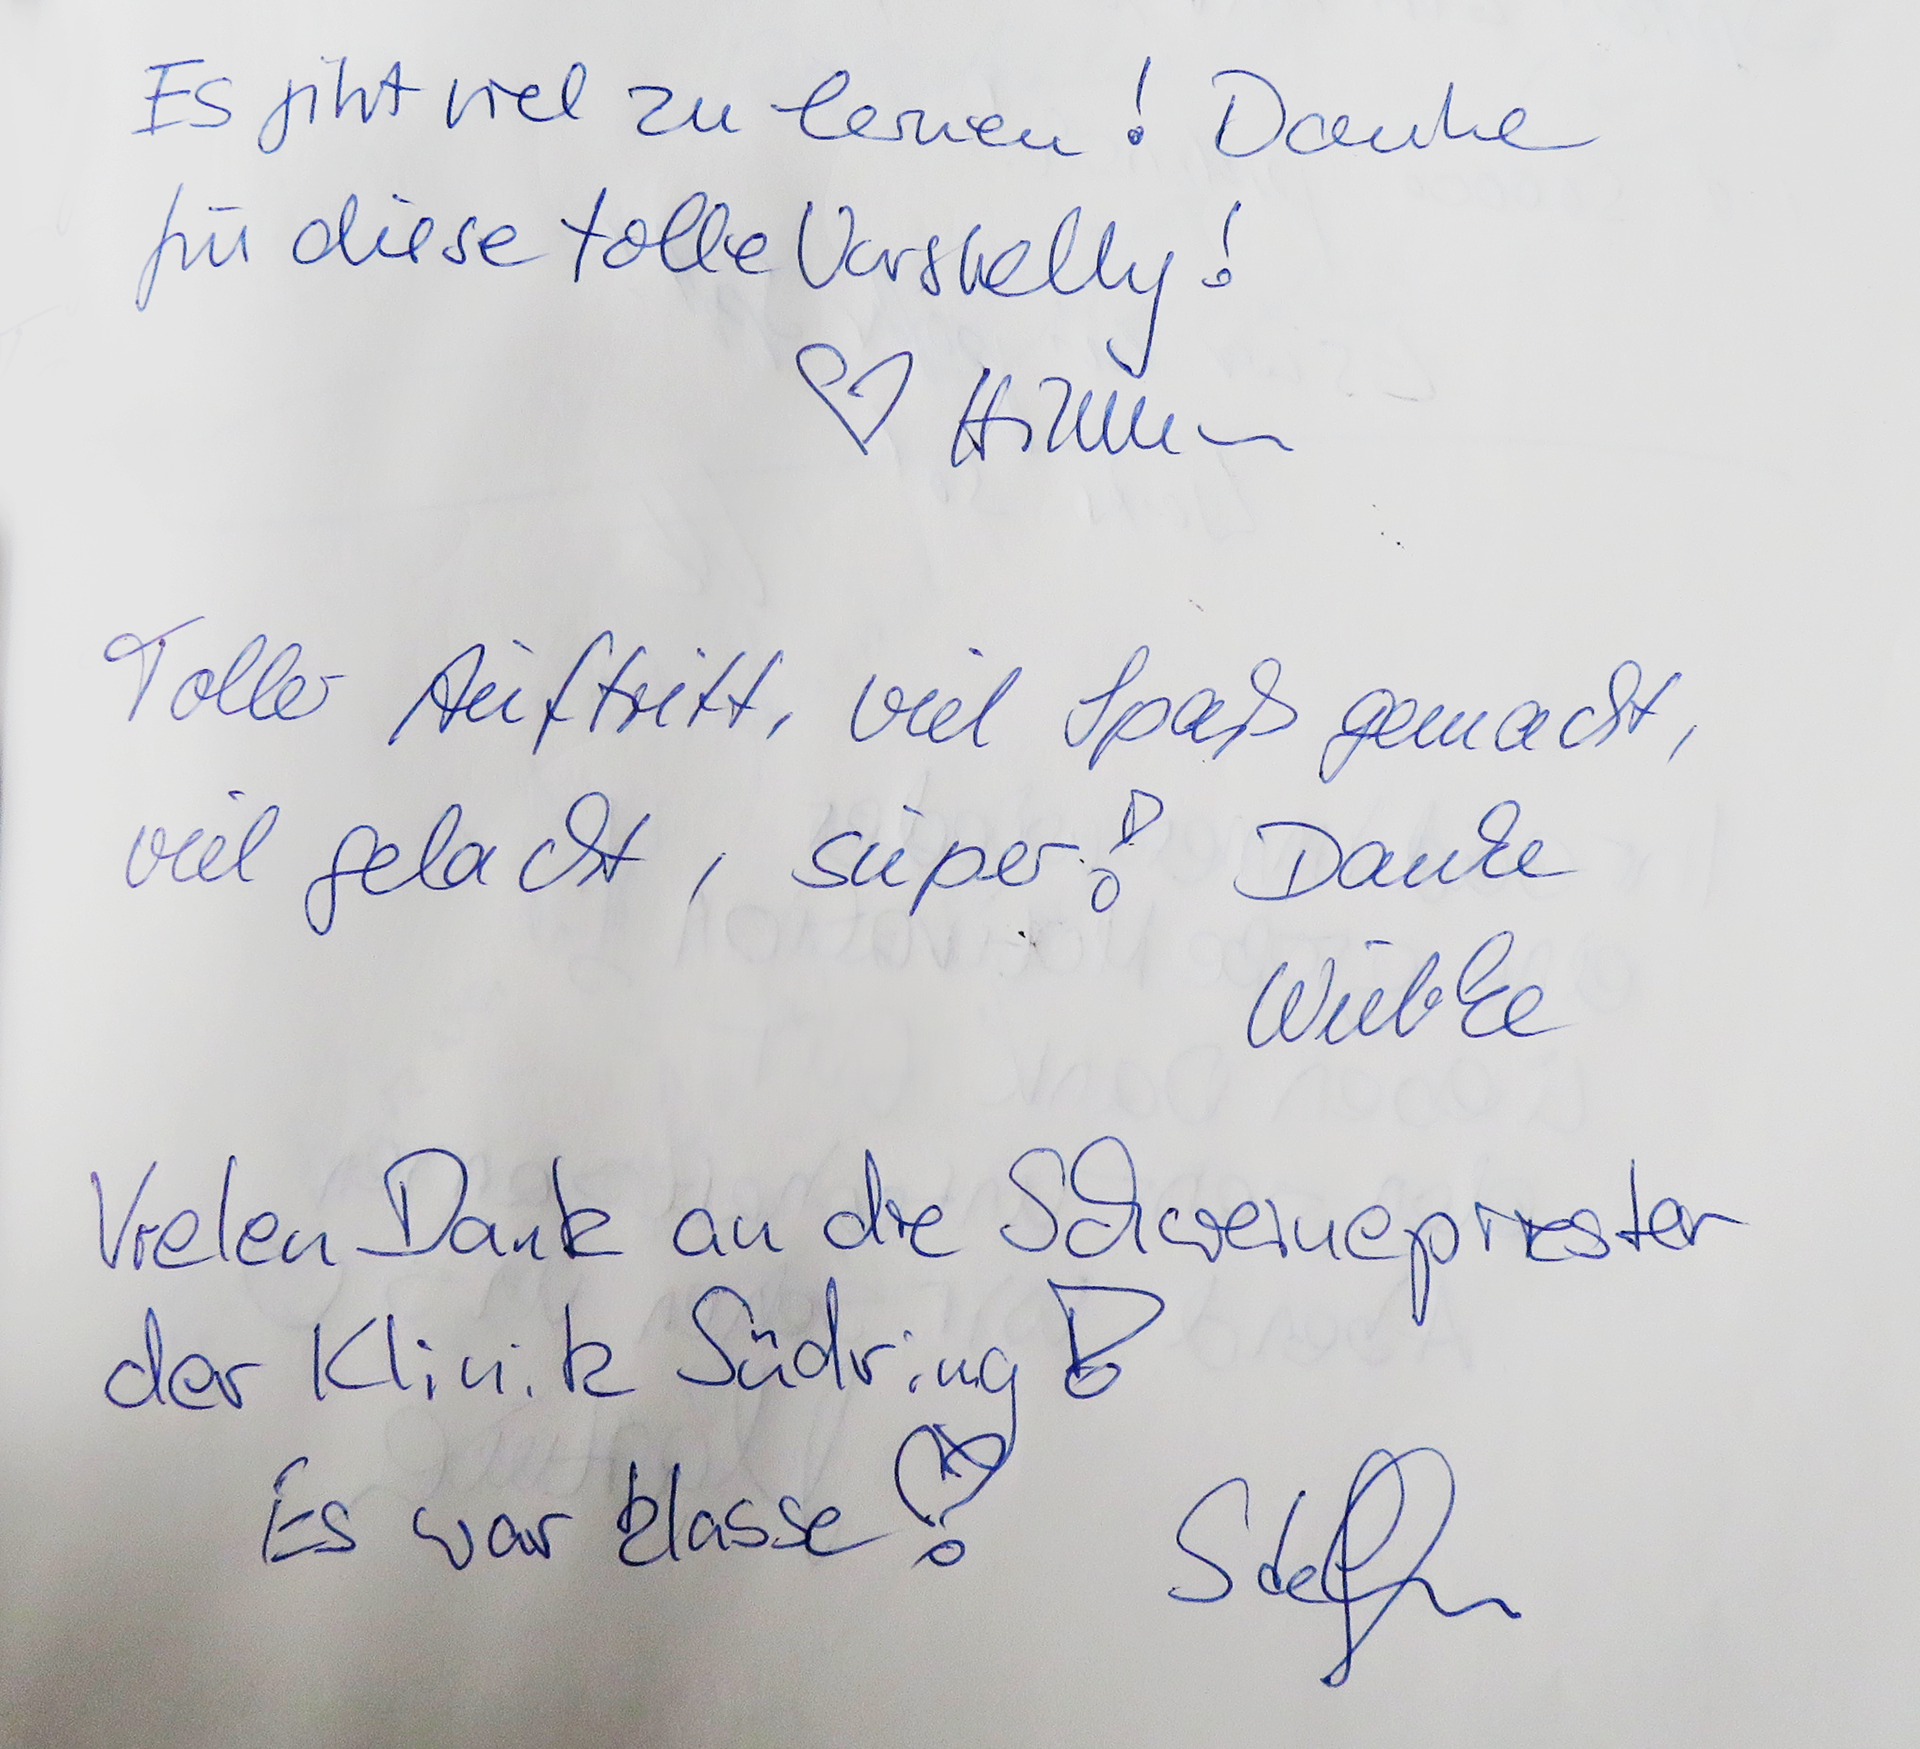 Es gibt viel zu lernen! Danke
für diese tolle Vorstellung!
♡
Toller Auftritt, viel Spaß gemacht,
viel gelacht, super! Danke
Wiebke
Vielen Dank an die Schweinepriester
der Klinik Südring!
Es war klasse!
Steffen